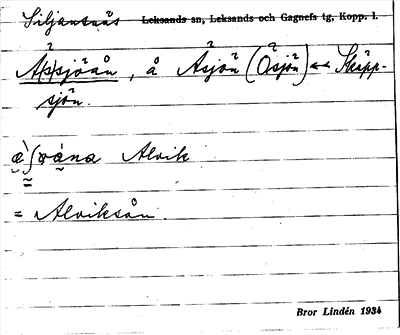 Siljansnäs Leksands sn, Leksands och Gagnefs tg, Kopp. l.
Åsjöån, å Åsjön (Ösjön) ↔ Skäpp-
sjön.
Alvik
= Alviksån.
Bror Lindén 1934